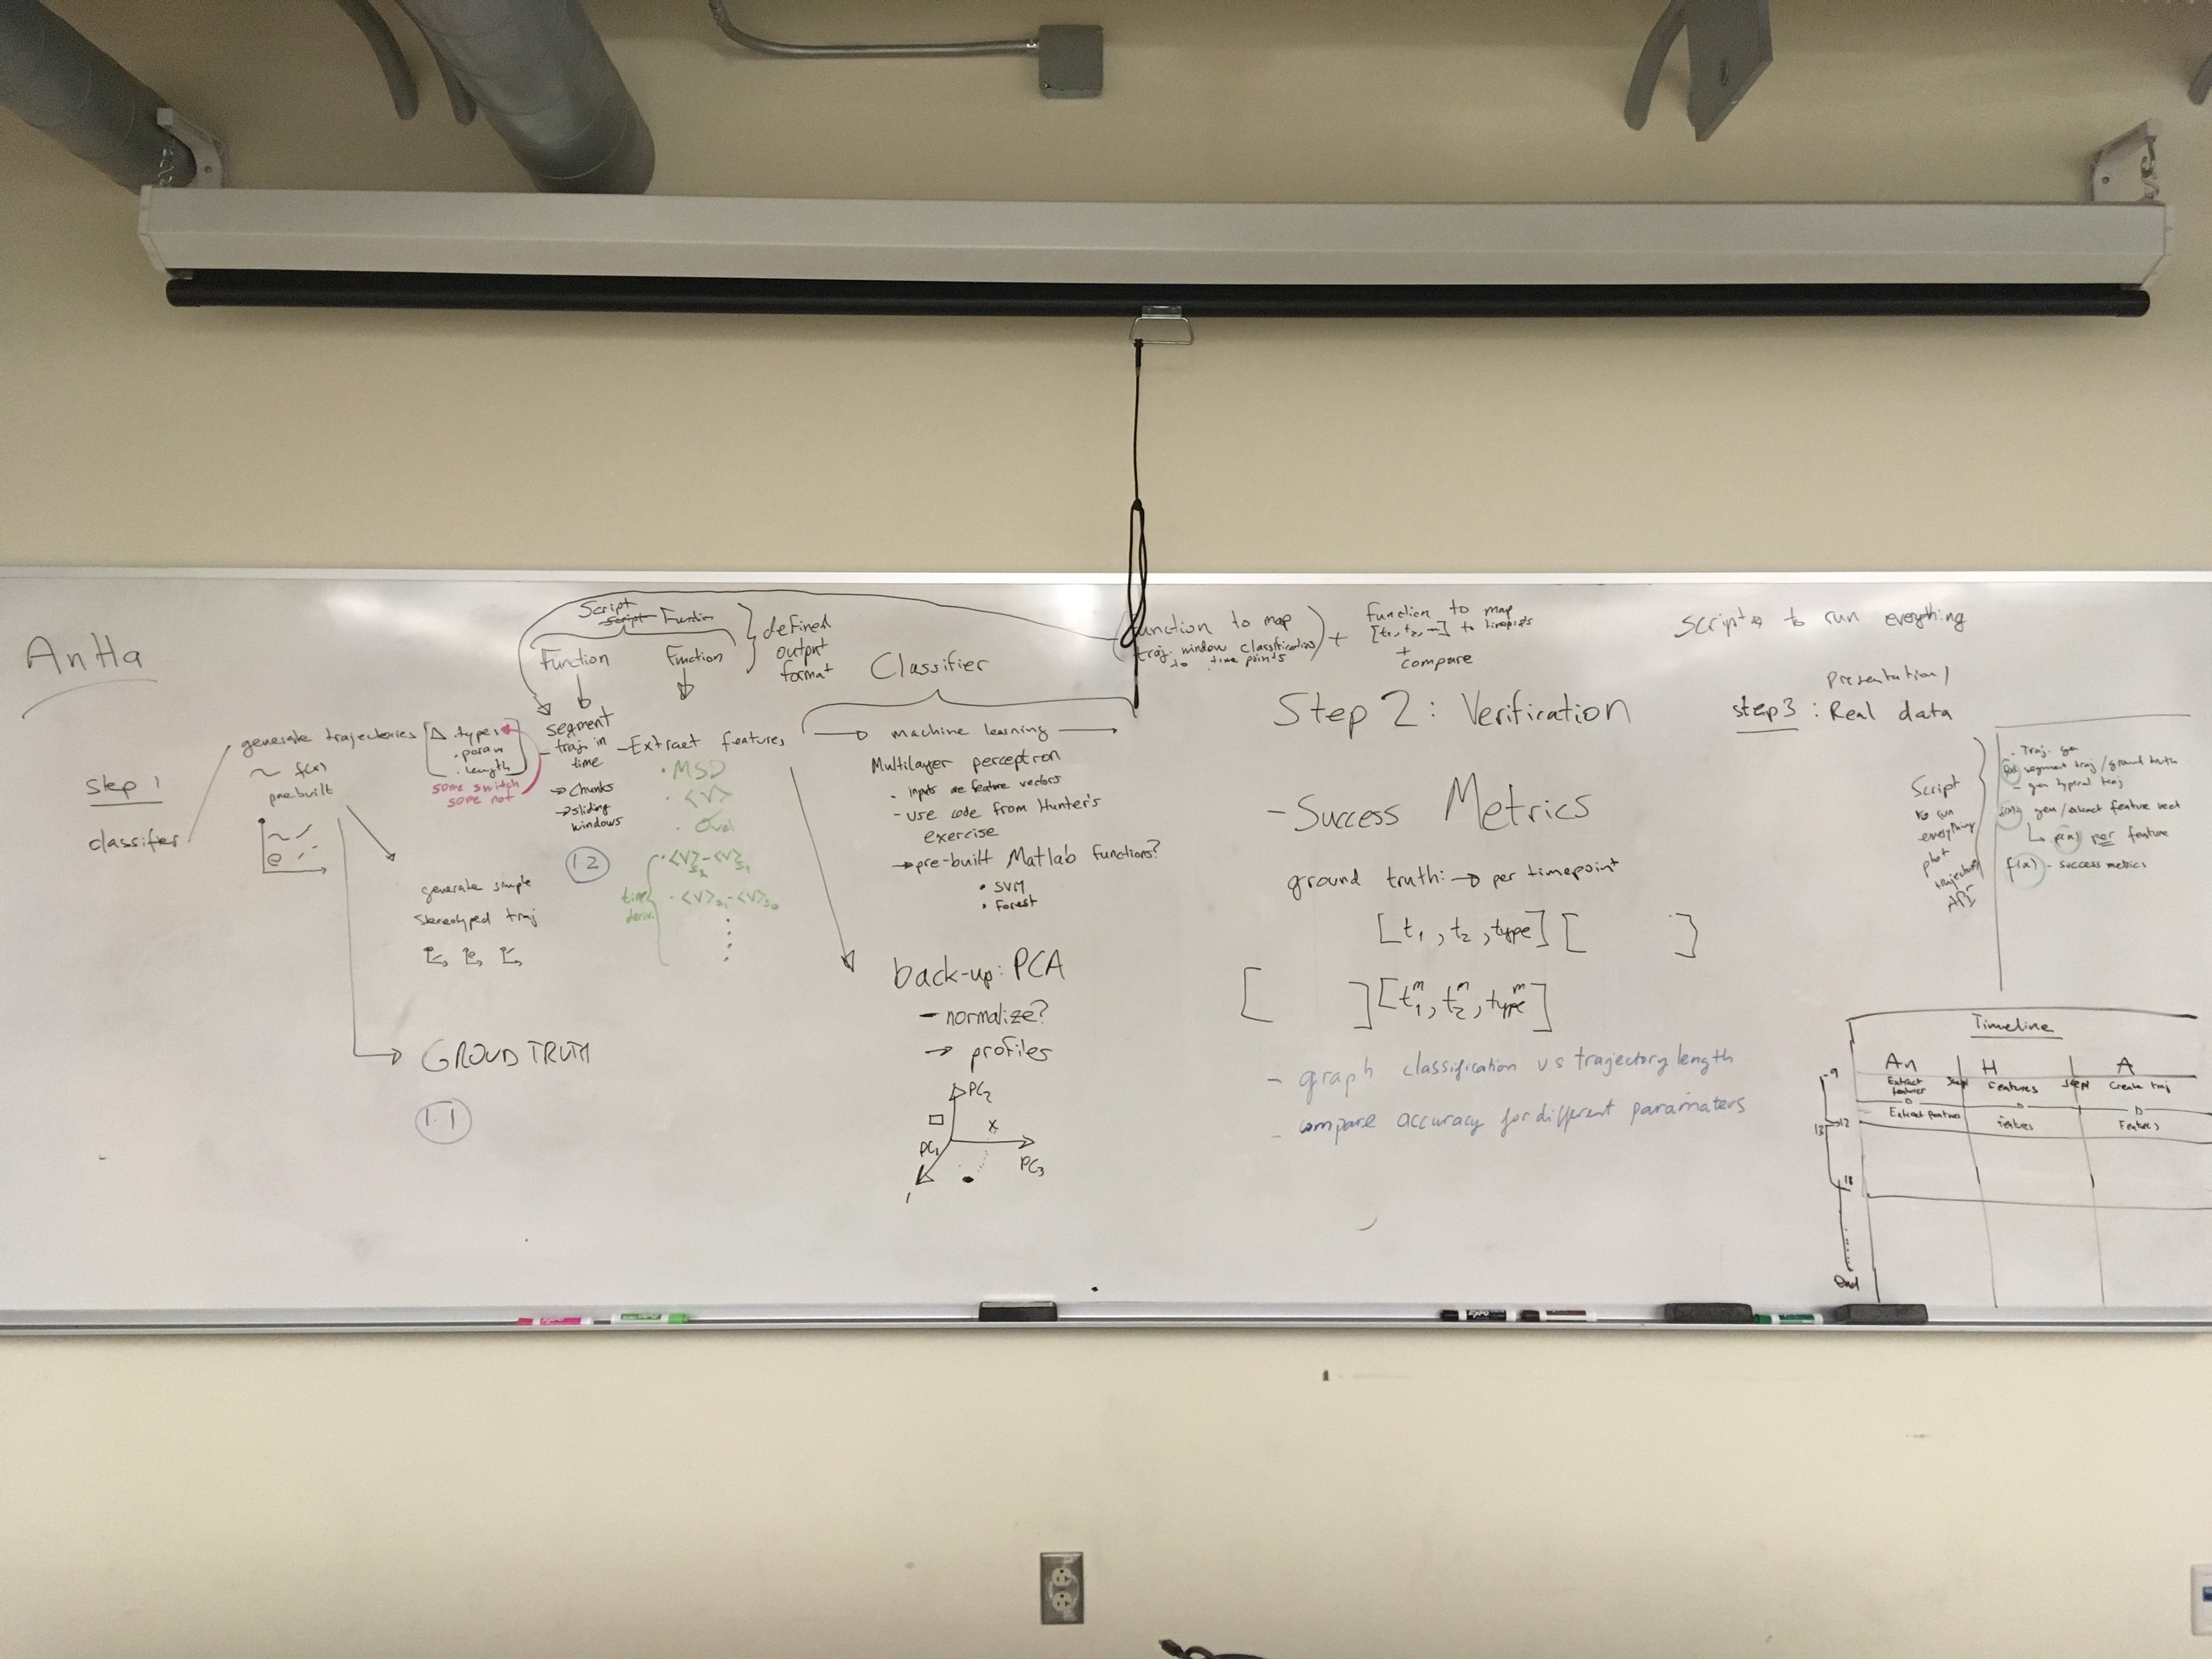 AnHa
step 1
classifier
generate trajectories
~ f(x)
prebuilt
Δ .types
. param
. length
some switch
some not
generate simple
stereotyped traj
GROUD TRUTH
1.1
Script
script Function
Function
Function
defined
output
format
segment
traj. in
time
→ Chunks
→ sliding
windows
1.2
- Extract features
· MSD
· <v>
· <v>s2 - <v>s1
· <v>s1 - <v>s0
time
deriv.
Classifier
→ machine learning →
Multilayer perceptron
- inputs are feature vectors
- use code from Hunter's
exercise
→ pre-built Matlab functions?
• SVM
• Forest
back-up: PCA
- normalize?
→ profiles
PC2
X
PC1
PC3
function to map
traj. window classification
to time points
+
function to map
[t1, t2, ...] to timepoints
+
compare
Step 2: Verification
- Success Metrics
ground truth: → per timepoint
[t1, t2, type] [ ]
[ ] [t1^m, t2^m, type^m]
- graph classification v.s. trajectory length
- compare accuracy for different paramaters
script to run everything
Presentation/
step 3 : Real data
Script
to run
everything
plot
trajectory
- Traj. gen
segment traj / ground truth
- gen typical traj
gen/extract feature vect
per feature
f(x) - success metrics
Timeline
An
H
A
Extract
features
Features
Create traj
Extract features
Features
Features
9
12
13
18
end